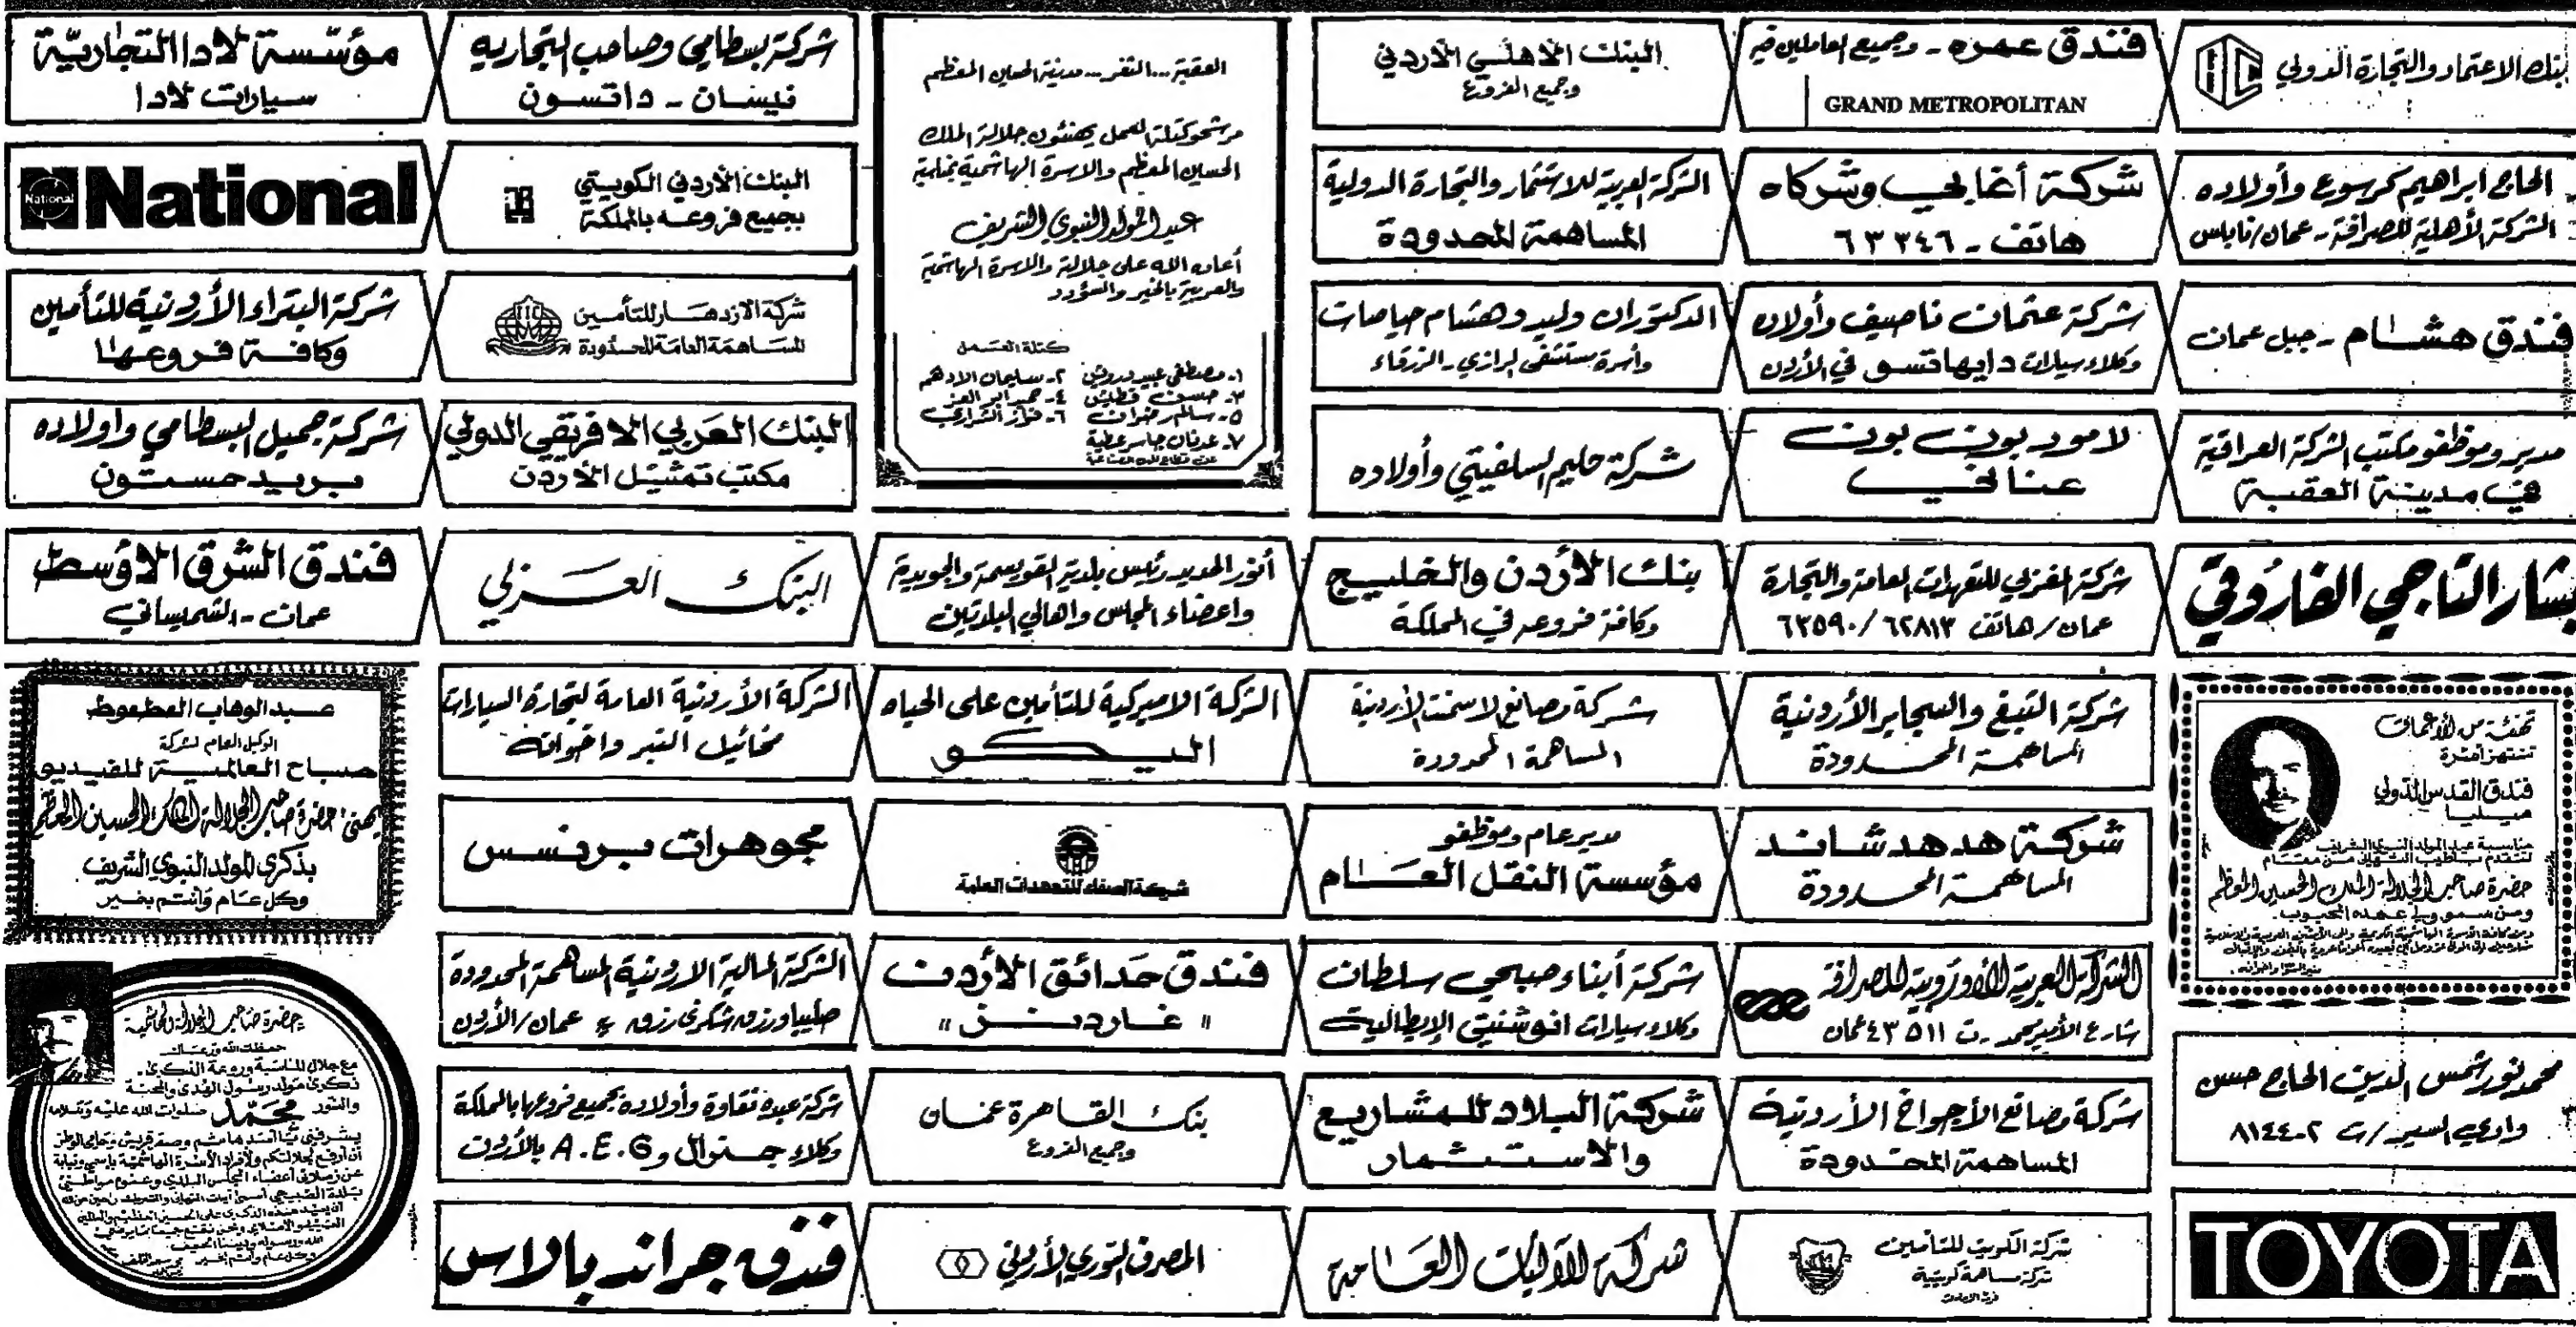 بنك الاعتماد والتجارة الدولي
فندق عمره - وجميع العاملين فيه
GRAND METROPOLITAN
البنك الأهلي الأردني
وجميع الفروع
العقبة... الثغر... مدينة الحسين المعظم
مرشحو كتلة العمل يهنئون جلالة الملك
الحسين المعظم والاسرة الهاشمية بمناسبة
عيد المولد النبوي الشريف
أعاده الله على جلالته والاسرة الهاشمية
والعروبة بالخير والسؤدد
كتلة العمل
٢- سليمان الادهم
٥- سالم رضوان
٧- عدنان جاسر عطية
شركة بسطامي وصاحب التجارية
نيسان - داتسون
مؤسسة لادا التجارية
سيارات لادا
الحاج ابراهيم كرسوع وأولاده
الشركة الأهلية للصرافة - عمان/نابلس
شركة أغابي وشركاه
هاتف - ٦٣٣٤٦
الشركة العربية للاستثمار والتجارة الدولية
المساهمة المحدودة
البنك الأردني الكويتي
بجميع فروعه بالمملكة
National
National
فندق هشام - جبل عمان
شركة عثمان ناصيف وأولاده
وكلاء سيارات دايهاتسو في الأردن
الدكتوران وليد وهشام حياصات
وأسرة مستشفى الرازي - الزرقاء
شركة الازدهار للتأمين
المساهمة العامة المحدودة
شركة البتراء الأردنية للتأمين
وكافة فروعها
مدير وموظفو مكتب الشركة العراقية
في مدينة العقبة
لامود بون بون
عنالخي
شركة حليم السلفيتي وأولاده
البنك العربي الافريقي الدولي
مكتب تمثيل الأردن
شركة جميل البسطامي واولاده
بريدجستون
بشار التاجي الفاروقي
شركة المغربي للتعهدات العامة والتجارة
عمان/هاتف ٦٢٨١٣ / ٦٢٥٩٠
بنك الأردن والخليج
وكافة فروعه في المملكة
أنور الحديد رئيس بلدية القويسمة والجويدة
واعضاء المجلس واهالي البلدتين
البنك العربي
فندق الشرق الاوسط
عمان - الشميساني
تهنئة من الأعماق
تنتهز أسرة
فندق القدس الدولي
ميليا
مناسبة عيد المولد النبوي الشريف
لتتقدم بأطيب التهاني من مقام
حضرة صاحب الجلالة الملك الحسين المعظم
ومن سمو ولي عهده المحبوب
شركة التبغ والسجاير الأردنية
المساهمة المحدودة
شركة مصانع الاسمنت الأردنية
المساهمة المحدودة
الشركة الاميركية للتأمين على الحياه
اليكو
الشركة الأردنية العامة لتجارة السيارات
مخائيل النبر واخوانه
عبدالوهاب العطعوط
الوكيل العام لشركة
صباح العالمية للفيديو
يهنئ حضرة صاحب الجلالة الملك الحسين المعظم
بذكرى المولد النبوي الشريف
وكل عام وأنتم بخير
شركة هدهد شاند
المساهمة المحدودة
مدير عام وموظفو
مؤسسة النقل العام
شركة الصفا للتعهدات العامة
مجوهرات برنسس
الشركة العربية الأوروبية للصرافة
شارع الأمير محمد - ت ٤٣٥١١ عمان
شركة أبناء صبحي سلطان
وكلاء سيارات انوشنتي الإيطالية
فندق حدائق الأردن
"غاردنز"
الشركة المالية الاردنية المساهمة المحدودة
صليبا ورزق شكري رزق عمان/الأردن
حضرة صاحب الجلالة الهاشمية
حفظك الله ورعاك
مع جلال المناسبة وروعة الذكرى
ذكرى مولد رسول الهدى والمحبة
والنور محمد صلوات الله عليه وسلامه
محمد نور شمس الدين الحاج حسن
وادي السير/ت ٨١٤٤٠٢
شركة مصانع الأجواخ الأردنية
المساهمة المحدودة
شركة البلاد للمشاريع
والاستثمار
بنك القاهرة عمان
وجميع الفروع
شركة عبده نقاوة وأولاده بجميع فروعها بالمملكة
وكلاء جنرال و A.E.G بالأردن
TOYOTA
شركة الكويت للتأمين
شركة مساهمة كويتية
شركة الآليات العامة
المصرف السوري الأردني
فندق جراند بالاس